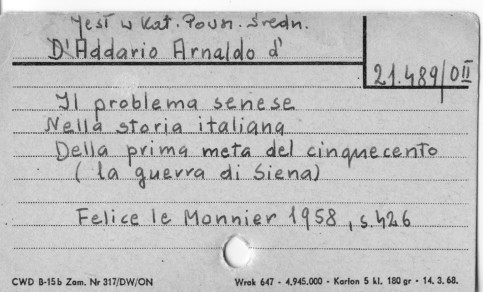 Jest w Kat. Povn. Średn.
D'Addario Arnaldo d'
21.489/OII
Il problema senese
Nella storia italiana
Della prima meta del cinquecento
( la guerra di Siena)
Felice le Monnier 1958, s.426
CWD B-15b Zam. Nr 317/DW/ON
Wrok 647 - 4.945.000 - Karton 5 kl. 180 gr - 14. 3. 68.